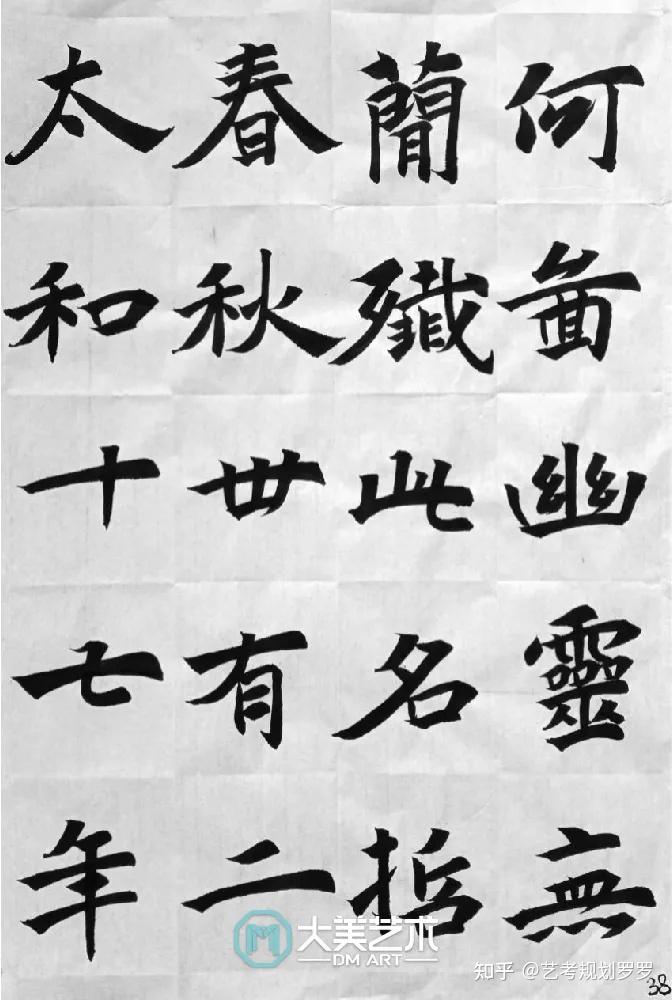 何啚幽靈無
簡殲此名哲
春秋丗有二
太和十七年
大美艺术
DM ART
知乎 @艺考规划罗罗
38